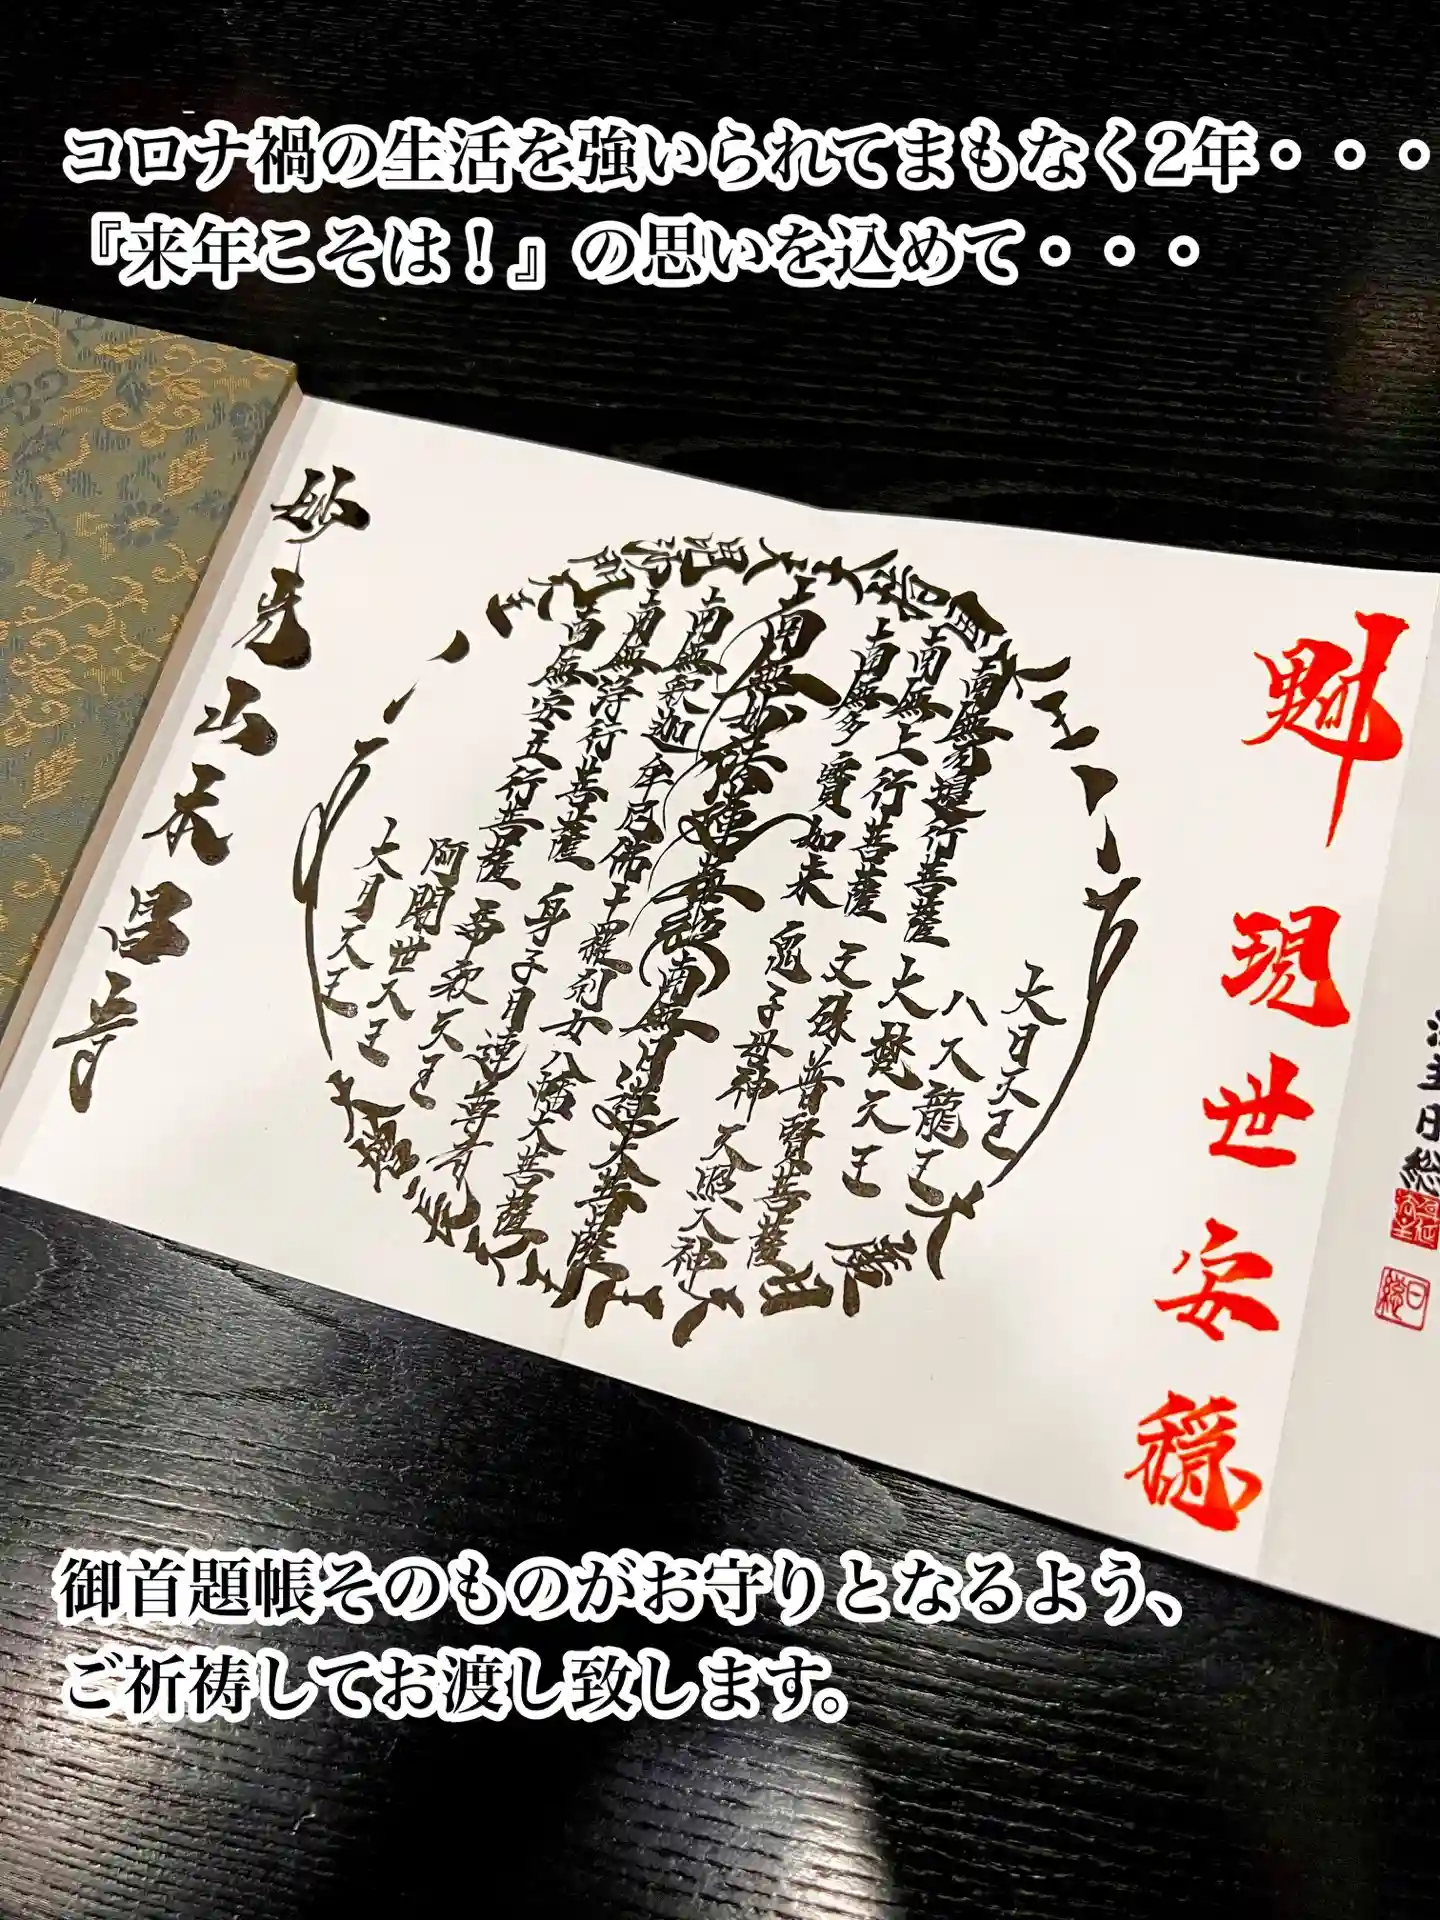 コロナ禍の生活を強いられてまもなく2年・・・
『来年こそは！』の思いを込めて・・・
魁 現世安穏
大日天王
八大龍王
南無無邊行菩薩 大梵天王
南無上行菩薩 文殊普賢菩薩
南無多寶如来 鬼子母神 天照大神
南無妙法蓮華経 南無日蓮大菩薩
南無釈迦牟尼佛 十羅刹女 八幡大菩薩
南無浄行菩薩 身子目連尊者
南無安立行菩薩 帝釈天王
阿闍世大王
大月天王
妙光山本昌寺
日総
御首題帳そのものがお守りとなるよう、
ご祈祷してお渡し致します。